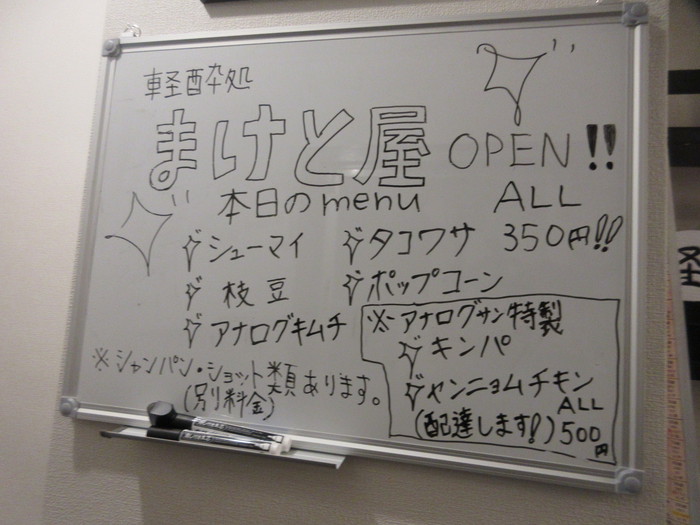 軽酔処
まけと屋 OPEN!!
本日のmenu ALL
シューマイ タコワサ 350円!!
枝豆 ポップコーン
アナログキムチ
※シャンパン・ショット類あります。
(別料金)
※アナログサン特製
キンパ
ヤンニョムチキン
ALL
(配達します!) 500円